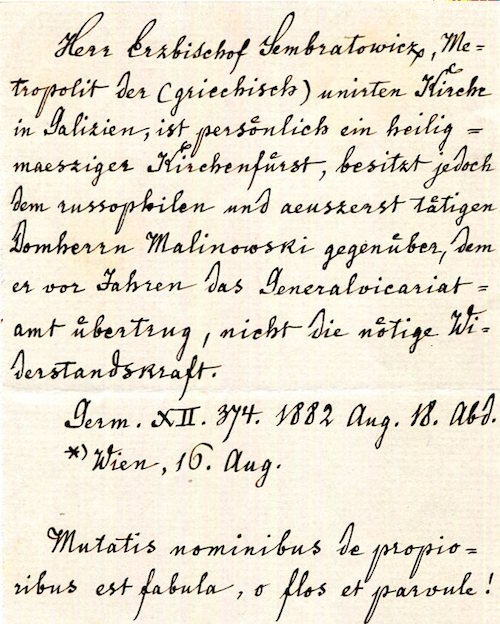 Herr Erzbischof Sembratowicz, Me-
tropolit der (griechisch) unirten Kirche
in Galizien, ist persönlich ein heilig =
maesziger Kirchenfürst, besitzt jedoch
dem russophilen und aeuszerst tätigen
Domherrn Malinowski gegenüber, dem
er vor Jahren das Generalvicariat =
amt übertrug, nicht die nötige Wi=
derstandskraft.
Germ. XII. 374. 1882 Aug. 18. Abd.
*) Wien, 16. Aug.
Mutatis nominibus de propio=
ribus est fabula, o flos et parvule!